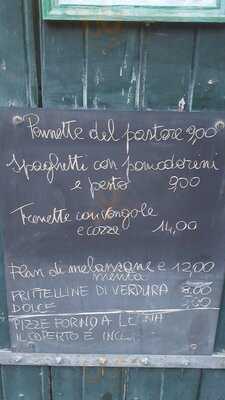 Pennette del pastore 9,00
Spaghetti con pomodorini
e pesto 9,00
Trenette con vongole
e cozze 14,00
Flan di melanzane e 12,00
menta
FRITTELLINE DI VERDURA 8,00
DOLCE
PIZZE FORNO A LEGNA
IL COPERTO È INCL.